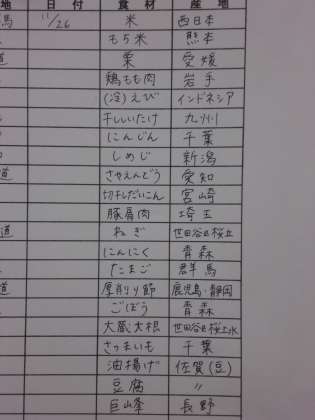 地 日付 食材 産地
馬 11/26 米 西日本
もち米 熊本
道 栗 愛媛
鶏もも肉 岩手
(冷)えび インドネシア
干ししいたけ 九州
にんじん 千葉
しめじ 新潟
道 さやえんどう 愛知
切干しだいこん 宮崎
豚肩肉 埼玉
道 ねぎ 世田谷区桜丘
にんにく 青森
たまご 群馬
道 厚削り節 鹿児島・静岡
ごぼう 青森
大蔵大根 世田谷区桜上水
さつまいも 千葉
油揚げ 佐賀(豆)
豆腐 〃
巨峰 長野